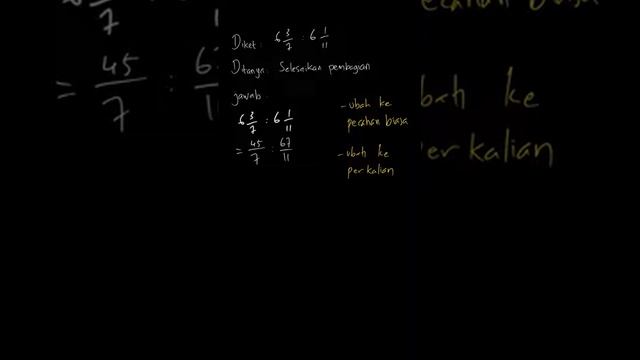 Diket : 6 3/7 : 6 1/11
Ditanya : Selesaikan pembagian
jawab :
6 3/7 : 6 1/11 - ubah ke
pecahan biasa
= 45/7 : 67/11 - ubah ke
perkalian